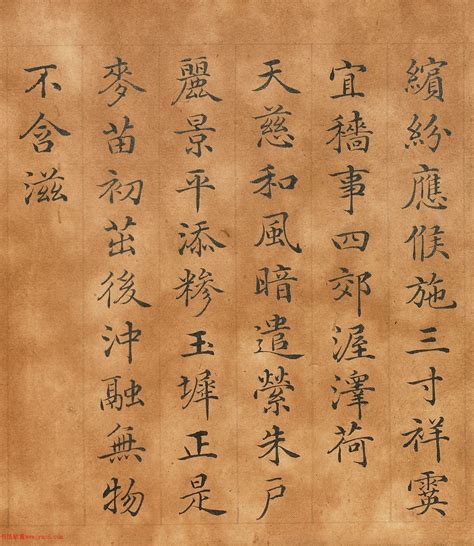 繽紛應候施三寸祥霙
宜穡事四郊渥澤荷
天慈和風暗遣縈朱戶
麗景平添糝玉墀正是
麥苗初茁後沖融無物
不含滋